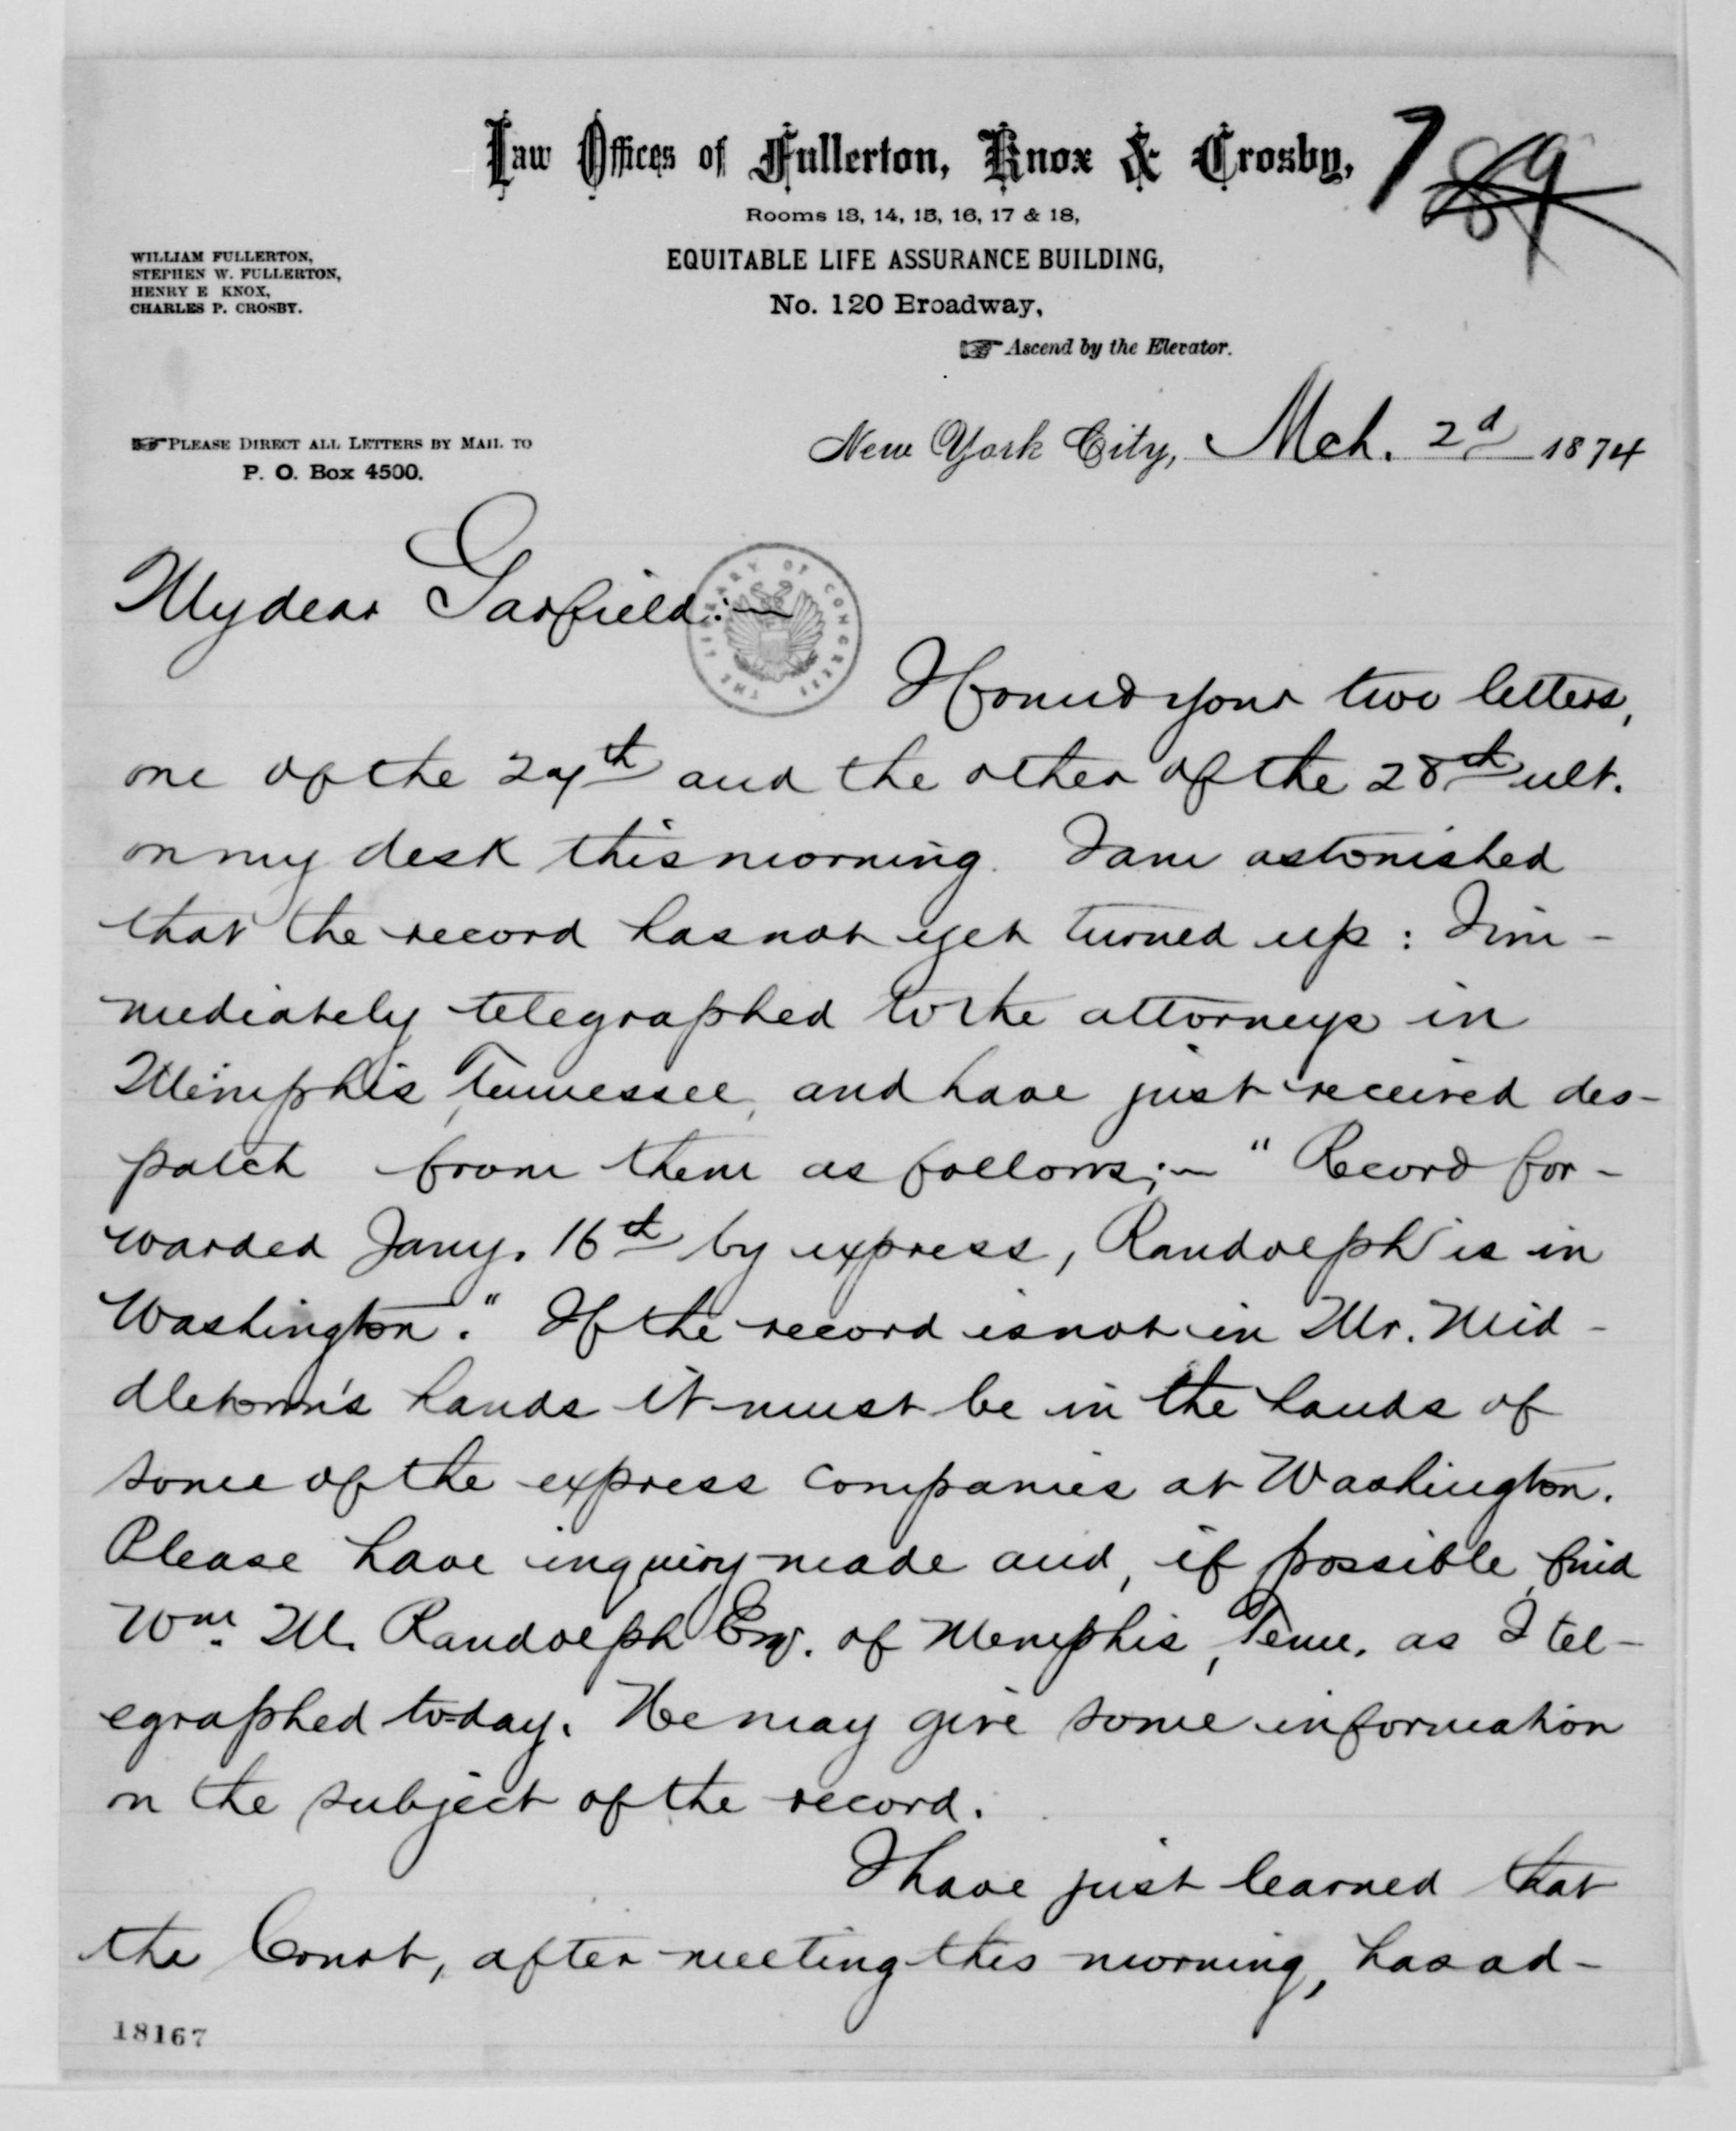 Law Offices of Fullerton, Knox & Crosby,
Rooms 13, 14, 15, 16, 17 & 18,
EQUITABLE LIFE ASSURANCE BUILDING,
No. 120 Broadway,
Ascend by the Elevator.
WILLIAM FULLERTON,
STEPHEN W. FULLERTON,
HENRY E KNOX,
CHARLES P. CROSBY.
PLEASE DIRECT ALL LETTERS BY MAIL TO
P. O. Box 4500.
New York City, Mch. 2d 1874
My dear Garfield:—
THE LIBRARY OF CONGRESS
I found your two letters,
one of the 24th and the other of the 28th ult.
on my desk this morning. I am astonished
that the record has not yet turned up: I im-
mediately telegraphed to the attorneys in
Memphis, Tennessee, and have just received des-
patch from them as follows;— "Record for-
warded Jany. 16th by express, Randolph is in
Washington." If the record is not in Mr. Mid-
dleton's hands it must be in the hands of
some of the express companies at Washington.
Please have inquiry made and, if possible, find
Wm. M. Randolph Esq. of Memphis, Tenn. as I tel-
egraphed to-day. He may give some information
on the subject of the record.
I have just learned that
the Court, after meeting this morning, has ad-
18167